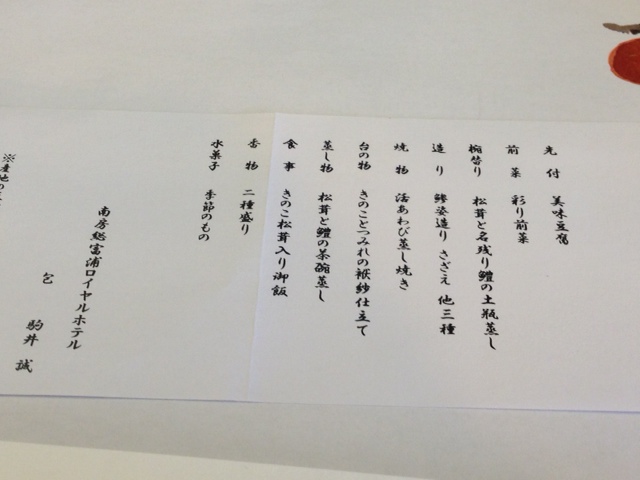 先付 美味豆腐
前菜 彩り前菜
椀替り 松茸と名残り鱧の土瓶蒸し
造り 鯵姿造り さざえ 他三種
焼物 活あわび蒸し焼き
台の物 きのことつみれの袱紗仕立て
蒸し物 松茸と鱧の茶碗蒸し
食事 きのこ松茸入り御飯
香物 二種盛り
水菓子 季節のもの
南房総富浦ロイヤルホテル
駒井 誠
※産地の